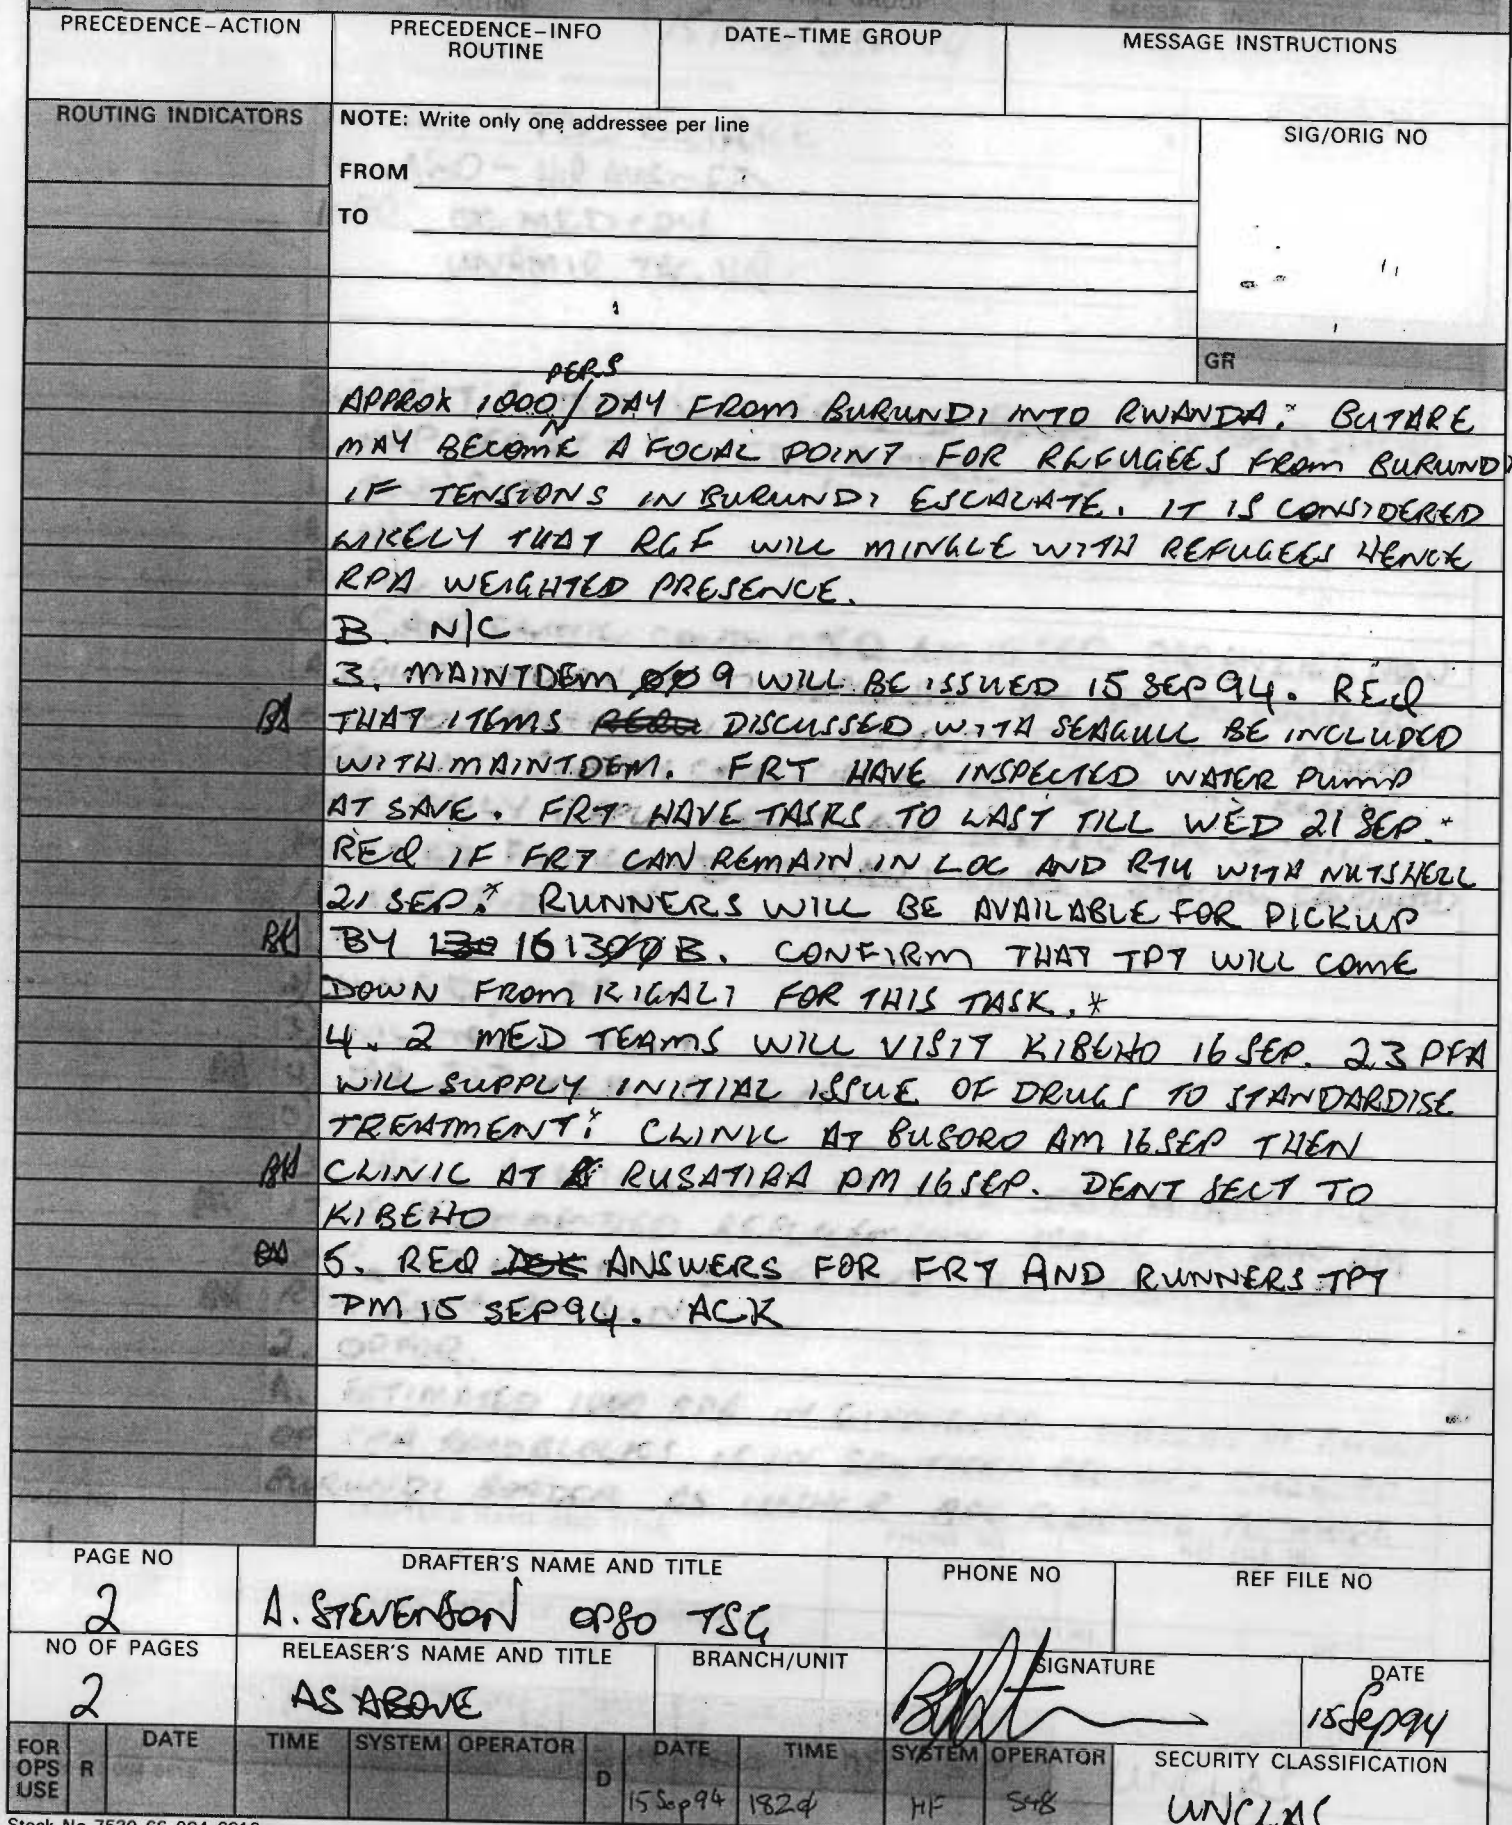 PRECEDENCE-ACTION
PRECEDENCE-INFO
ROUTINE
DATE-TIME GROUP
MESSAGE INSTRUCTIONS
ROUTING INDICATORS
NOTE: Write only one addressee per line
SIG/ORIG NO
FROM
TO
GR
PERS
APPROX 1000 / DAY FROM BURUNDI INTO RWANDA. BUTARE
MAY BECOME A FOCAL POINT FOR REFUGEES FROM BURUNDI
IF TENSIONS IN BURUNDI ESCALATE. IT IS CONSIDERED
LIKELY THAT RGF WILL MINGLE WITH REFUGEES HENCE
RPA WEIGHTED PRESENCE.
B. N/C
3. MAINTDEM 009 WILL BE ISSUED 15 SEP 94. REQ
THAT ITEMS DISCUSSED WITH SEAGULL BE INCLUDED
WITH MAINTDEM. FRT HAVE INSPECTED WATER PUMP
AT SAVE. FRT HAVE TASKS TO LAST TILL WED 21 SEP.*
REQ IF FRT CAN REMAIN IN LOC AND RTU WITH NUTSHELL
21 SEP.* RUNNERS WILL BE AVAILABLE FOR PICKUP
BY 130 161300B. CONFIRM THAT TPT WILL COME
DOWN FROM KIGALI FOR THIS TASK.*
4. 2 MED TEAMS WILL VISIT KIBEHO 16 SEP. 23 PFA
WILL SUPPLY INITIAL ISSUE OF DRUGS TO STANDARDISE
TREATMENT.* CLINIC AT BUSORO AM 16 SEP THEN
CLINIC AT RUSATIRA PM 16 SEP. DENT SECT TO
KIBEHO
5. REQ ANSWERS FOR FRT AND RUNNERS TPT
PM 15 SEP 94. ACK
PAGE NO
2
DRAFTER'S NAME AND TITLE
A. STEVENSON OPSO TSG
PHONE NO
REF FILE NO
NO OF PAGES
2
RELEASER'S NAME AND TITLE
AS ABOVE
BRANCH/UNIT
SIGNATURE
DATE
15 Sep 94
FOR
OPS
USE
R
DATE
TIME
SYSTEM
OPERATOR
D
DATE
15 Sep 94
TIME
1820
SYSTEM
HF
OPERATOR
SECURITY CLASSIFICATION
UNCLAS